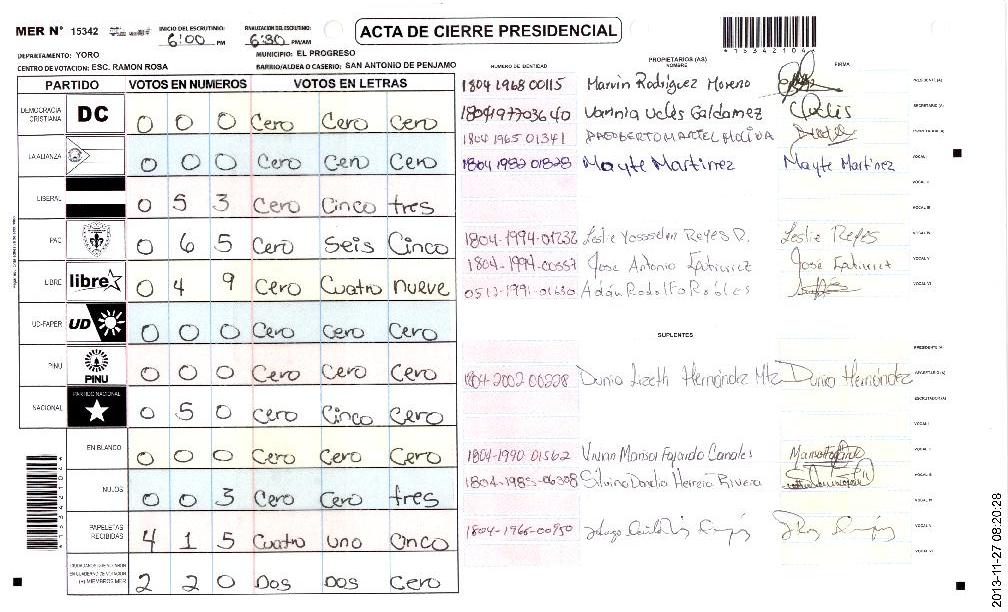 MER N° 15342 INICIO DEL ESCRUTINIO: 6:00 PM FINALIZACION DEL ESCRUTINIO: 6:30 PM/AM
ACTA DE CIERRE PRESIDENCIAL
*15342104*
DEPARTAMENTO: YORO MUNICIPIO: EL PROGRESO
CENTRO DE VOTACION: ESC. RAMON ROSA BARRIO/ALDEA O CASERIO: SAN ANTONIO DE PENJAMO
PARTIDO VOTOS EN NUMEROS VOTOS EN LETRAS
DEMOCRACIA CRISTIANA DC 0 0 0 Cero Cero Cero
LA ALIANZA 0 0 0 Cero Cero Cero
LIBERAL 0 5 3 Cero Cinco tres
PAC 0 6 5 Cero Seis Cinco
LIBRE libre 0 4 9 Cero Cuatro nueve
UD-FAPER UD 0 0 0 Cero Cero Cero
PINU PINU 0 0 0 Cero Cero Cero
NACIONAL PARTIDO NACIONAL 0 5 0 Cero Cinco Cero
EN BLANCO 0 0 0 Cero Cero Cero
NULOS 0 0 3 Cero Cero tres
PAPELETAS RECIBIDAS 4 1 5 Cuatro uno Cinco
CIUDADANOS QUE VOTARON EN CUADERNO DE VOTACION (+) MIEMBROS MER 2 2 0 Dos Dos Cero
NUMERO DE IDENTIDAD PROPIETARIOS (AS) NOMBRE FIRMA
1804 1968 00115 Marvin Rodriguez Moreno PRESIDENTE (A)
1804197703640 Vannia Velis Galdamez SECRETARIO (A)
1804 1965 01341
1804 1982 01828 Mayte Martinez Mayte Martinez VOCAL I
VOCAL II
VOCAL III
1804-1994-01232 Leslie Reyes D. Leslie Reyes VOCAL IV
1804-1994-00557 Jose Antonio Jose VOCAL V
0512-1991-01630 Adán Rodolfo Robles VOCAL VI
SUPLENTES
PRESIDENTE (A)
1804-2002 00228 Dunia Lizeth Hernández Mtz Dunia Hernández SECRETARIO (A)
ESCRUTADOR (A)
VOCAL I
1804-1990 01562 Vivian Marisol Fajardo Canales VOCAL II
1804-1985-06308 Silvina Donelia Herrera Rivera VOCAL III
VOCAL IV
1804-1966-00950 VOCAL V
VOCAL VI
*15342104*
2013-11-27 08:20:28